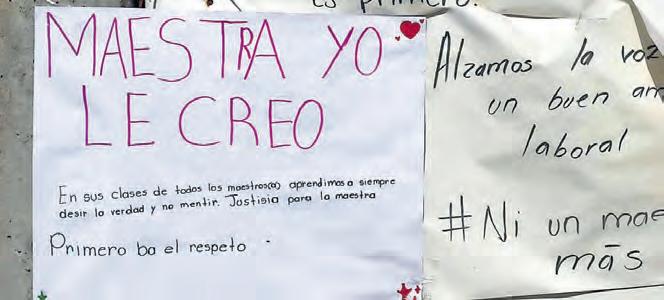 es primero.
MAESTRA YO
LE CREO
En sus clases de todos los maestros(as) aprendimos a siempre
desir la verdad y no mentir. Jostisia para la maestra
Primero ba el respeto
Alzamos la voz
un buen am
laboral
#Ni un mae
más